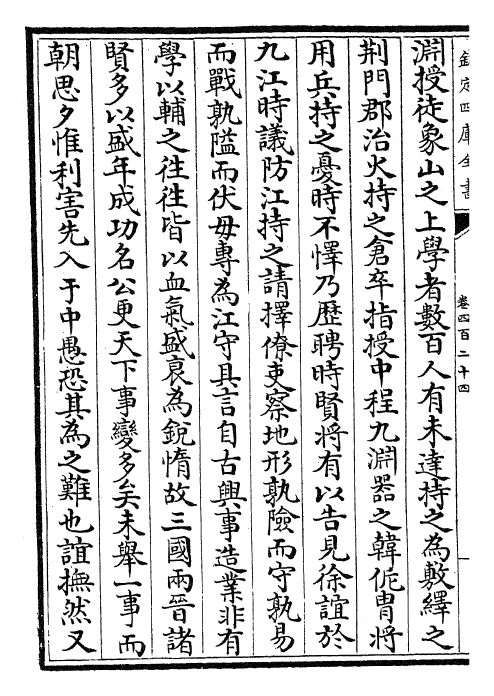 欽定四庫全書
卷四百二十四
淵授徒象山之上學者數百人有未達持之為敷繹之
荆門郡治火持之倉卒指授中程九淵器之韓侂胄將
用兵持之憂時不懌乃歷聘時賢將有以告見徐誼於
九江時議防江持之請擇僚吏察地形孰險而守孰易
而戰孰隘而伏毋專為江守具言自古興事造業非有
學以輔之徃徃皆以血氣盛衰為銳惰故三國兩晉諸
賢多以盛年成功名公更天下事變多矣未舉一事而
朝思夕惟利害先入于中愚恐其為之難也誼撫然又